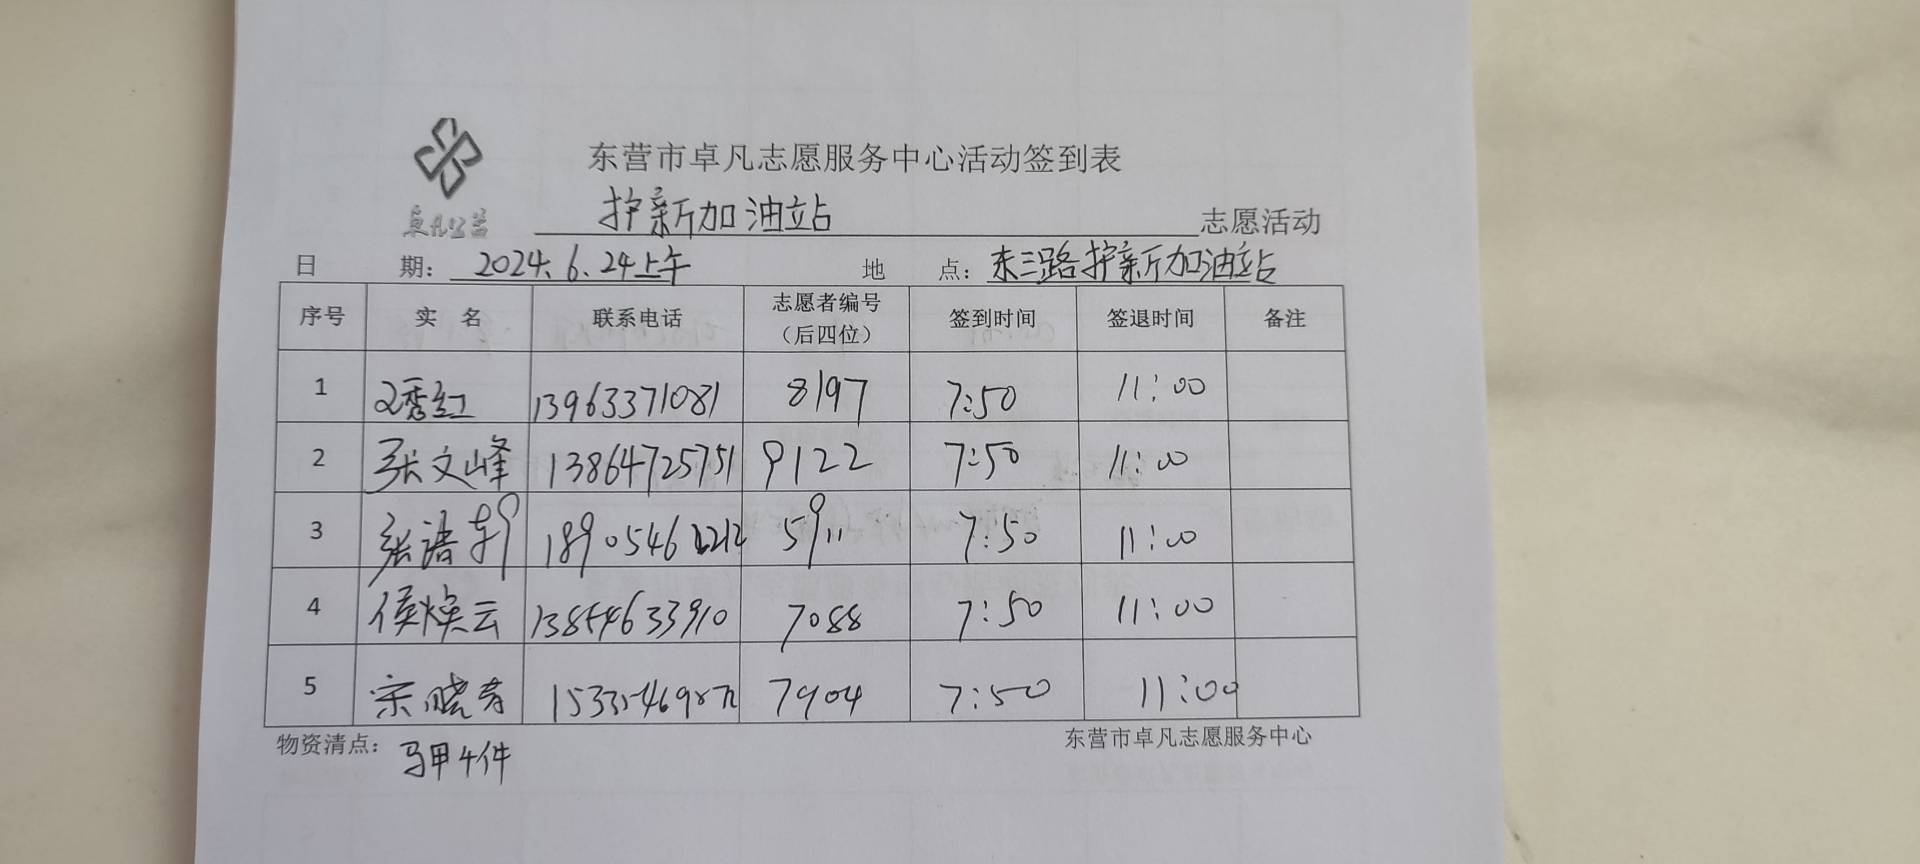 东营市卓凡志愿服务中心活动签到表
卓凡公益
护新加油站 志愿活动
日 期: 2024.6.24上午 地 点: 东三路护新加油站
序号 实 名 联系电话 志愿者编号（后四位） 签到时间 签退时间 备注
1 秀红 13963371081 8197 7:50 11:00
2 张文峰 13864725751 9122 7:50 11:00
3 张 轩 18905462212 5911 7:50 11:00
4 侯焕云 13854633910 7088 7:50 11:00
5 宋晓芳 7904 7:50 11:00
物资清点: 马甲4件 东营市卓凡志愿服务中心